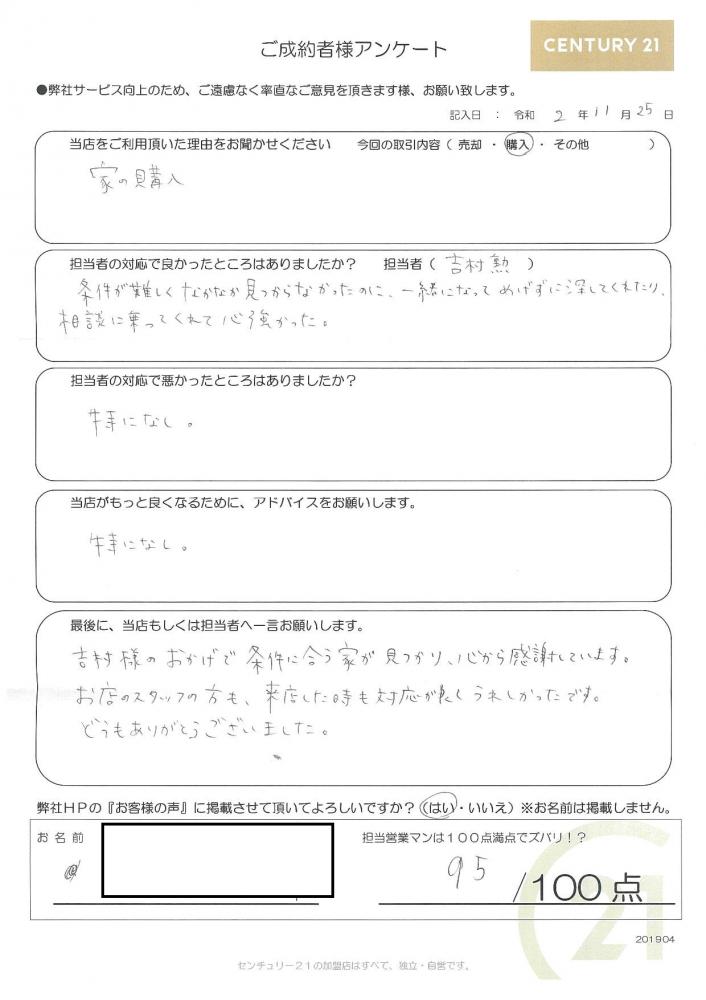 ご成約者様アンケート
CENTURY 21
●弊社サービス向上のため、ご遠慮なく率直なご意見を頂きます様、お願い致します。
記入日 ： 令和 2 年 11 月 25 日
当店をご利用頂いた理由をお聞かせください 今回の取引内容（ 売却 ・ 購入 ・ その他 ）
家の購入
担当者の対応で良かったところはありましたか？ 担当者（ 吉村 勲 ）
条件が難しくなかなか見つからなかったのに、一緒になってめげずに探してくれたり、
相談に乗ってくれて心強かった。
担当者の対応で悪かったところはありましたか？
特になし。
当店がもっと良くなるために、アドバイスをお願いします。
特になし。
最後に、当店もしくは担当者へ一言お願いします。
吉村様のおかげで条件に合う家が見つかり、心から感謝しています。
お店のスタッフの方も、来店した時も対応が良くうれしかったです。
どうもありがとうございました。
弊社ＨＰの『お客様の声』に掲載させて頂いてよろしいですか？（はい・いいえ）※お名前は掲載しません。
お 名 前
担当営業マンは１００点満点でズバリ！？
95 /100 点
21
201904
センチュリー２１の加盟店はすべて、独立・自営です。